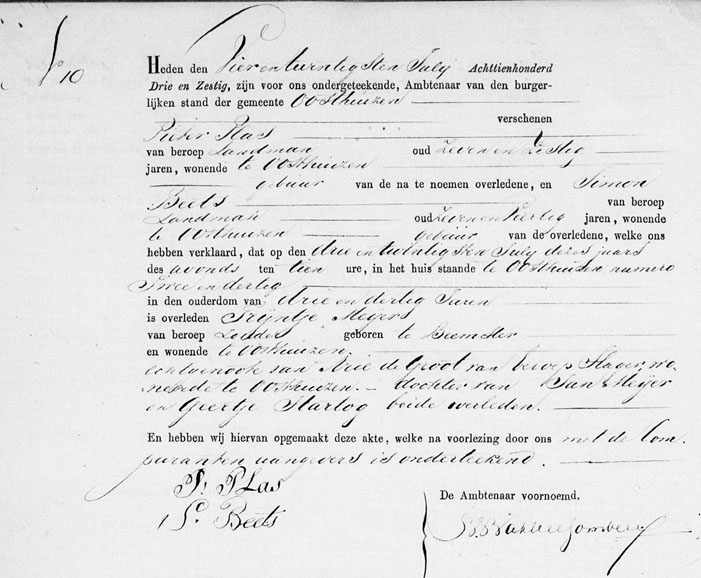 No 10
Heden den Vier en twintigsten July Achttienhonderd
Drie en Zestig, zijn voor ons ondergeteekende, Ambtenaar van den burger-
lijken stand der gemeente Oosthuizen
verschenen
Pieter Plas
van beroep Landman oud Zeven en Zestig
jaren, wonende te Oosthuizen
gebuur van de na te noemen overledene, en Simon
Beets van beroep
Landman oud Zeven en Veertig jaren, wonende
te Oosthuizen gebuur van de overledene, welke ons
hebben verklaard, dat op den drie en twintigsten July dezes jaars
des avonds ten tien ure, in het huis staande te Oosthuizen numero
Twee en dertig
in den ouderdom van drie en dertig Jaren
is overleden Trijntje Meyers
van beroep Zonder geboren te Beemster
en wonende te Oosthuizen.
echtgenoote van Arie de Groot van beroep Slager, wo-
nende te Oosthuizen. – dochter van Jan Meyer
en Geertje Hartog beide overleden.
En hebben wij hiervan opgemaakt deze akte, welke na voorlezing door ons met de Com-
paranten aangevers is onderteekend.
P. Plas
S. Beets
De Ambtenaar voornoemd.